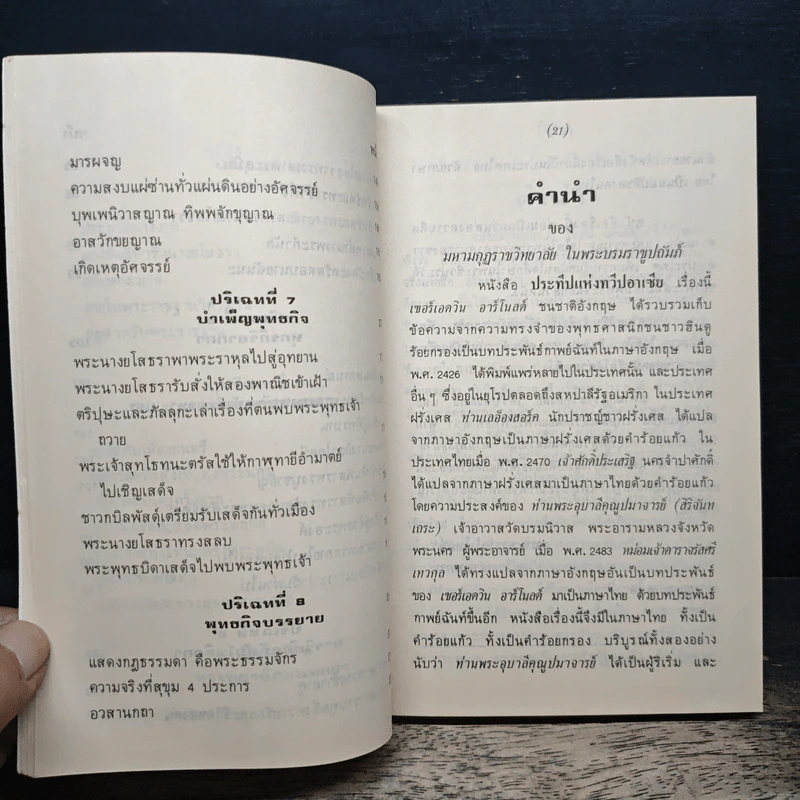 มารผจญ
ความสงบแผ่ซ่านทั่วแผ่นดินอย่างอัศจรรย์
บุพเพนิวาสญาณ ทิพพจักขุญาณ
อาสวักขยญาณ
เกิดเหตุอัศจรรย์
ปริเฉทที่ 7
บำเพ็ญพุทธกิจ
พระนางยโสธราพาพระราหุลไปสู่อุทยาน
พระนางยโสธรารับสั่งให้สองพาณิชเข้าเฝ้า
ตริปุษะและภัลลุกะเล่าเรื่องที่ตนพบพระพุทธเจ้า
ถวาย
พระเจ้าสุทโธทนะตรัสใช้ให้กาฬุทายีอำมาตย์
ไปเชิญเสด็จ
ชาวกบิลพัสดุ์เตรียมรับเสด็จกันทั่วเมือง
พระนางยโสธราทรงสลบ
พระพุทธบิดาเสด็จไปพบพระพุทธเจ้า
ปริเฉทที่ 8
พุทธกิจบรรยาย
แสดงกฎธรรมดา คือพระธรรมจักร
ความจริงที่สุขุม 4 ประการ
อวสานกถา
(21)
คำนำ
ของ
มหามกุฏราชวิทยาลัย ในพระบรมราชูปถัมภ์
หนังสือ ประทีปแห่งทวีปอาเซีย เรื่องนี้
เซอร์เอดวิน อาร์โนลด์ ชนชาติอังกฤษ ได้รวบรวมเก็บ
ข้อความจากความทรงจำของพุทธศาสนิกชนชาวฮินดู
ร้อยกรองเป็นบทประพันธ์กาพย์ฉันท์ในภาษาอังกฤษ เมื่อ
พ.ศ. 2426 ได้พิมพ์แพร่หลายไปในประเทศนั้น และประเทศ
อื่น ๆ ซึ่งอยู่ในยุโรปตลอดถึงสหปาลีรัฐอเมริกา ในประเทศ
ฝรั่งเศส ท่านเลอ็องสอร์ค นักปราชญ์ชาวฝรั่งเศส ได้แปล
จากภาษาอังกฤษเป็นภาษาฝรั่งเศสด้วยคำร้อยแก้ว ใน
ประเทศไทยเมื่อ พ.ศ. 2470 เจ้าศักดิ์ประเสริฐ นครจำปาศักดิ์
ได้แปลจากภาษาฝรั่งเศสมาเป็นภาษาไทยด้วยคำร้อยแก้ว
โดยความประสงค์ของ ท่านพระอุบาลีคุณูปมาจารย์ (สิริจันท
เถระ) เจ้าอาวาสวัดบรมนิวาส พระอารามหลวงจังหวัด
พระนคร ผู้พระอาจารย์ เมื่อ พ.ศ. 2483 หม่อมเจ้าดาราจรัสศรี
เทวกุล ได้ทรงแปลจากภาษาอังกฤษอันเป็นบทประพันธ์
ของ เซอร์เอดวิน อาร์โนลด์ มาเป็นภาษาไทย ด้วยบทประพันธ์
กาพย์ฉันท์ขึ้นอีก หนังสือเรื่องนี้จึงมีในภาษาไทย ทั้งเป็น
คำร้อยแก้ว ทั้งเป็นคำร้อยกรอง บริบูรณ์ทั้งสองอย่าง
นับว่า ท่านพระอุบาลีคุณูปมาจารย์ ได้เป็นผู้ริเริ่ม และ